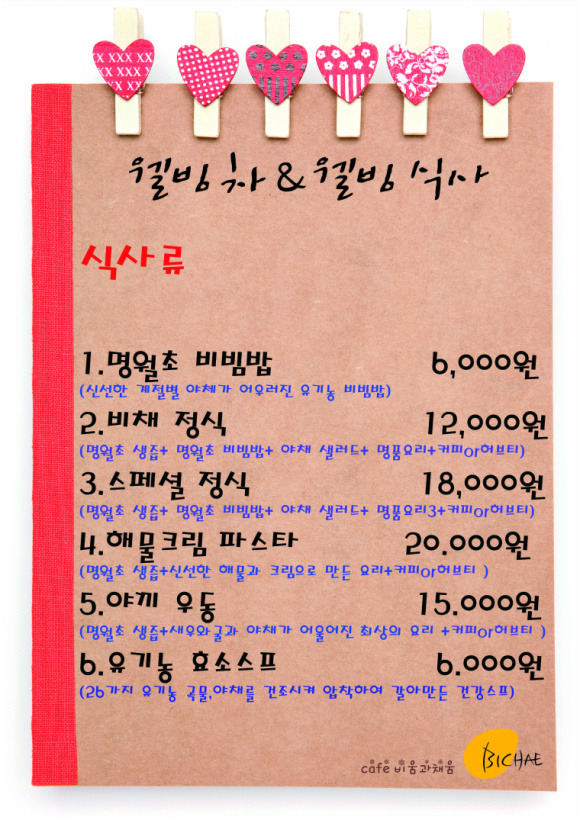 웰빙 차 & 웰빙 식사
식사류
1.명월초 비빔밥 6,000원
(신선한 계절별 야채가 어우러진 유기농 비빔밥)
2.비채 정식 12,000원
(명월초 생즙+ 명월초 비빔밥+ 야채 샐러드+ 명품요리+커피or허브티)
3.스페셜 정식 18,000원
(명월초 생즙+ 명월초 비빔밥+ 야채 샐러드+ 명품요리3+커피or허브티)
4.해물크림 파스타 20.000원
(명월초 생즙+신선한 해물과 크림으로 만든 요리+커피or허브티 )
5.야끼 우동 15.000원
(명월초 생즙+새우와굴과 야채가 어울어진 최상의 요리 +커피or허브티 )
6.유기농 효소스프 6.000원
(26가지 유기농 곡물,야채를 건조시켜 압착하여 갈아만든 건강스프)
cafe 비움과채움 BICHAE